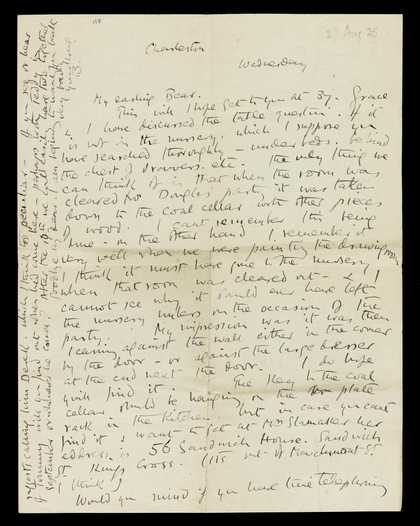 27 Aug 25
Charleston
Wednesday
My darling Bear.
This will I hope get to you at 37. Grace
& I have discussed the table question. If it
is not in the nursery, which I suppose you
have searched thoroughly - under beds, behind
the chest of drawers etc. the only thing we
can think of is that when the room was
cleared for Douglas' party it was taken
down to the coal cellar with other pieces
of wood. I can't remember this being
done - on the other hand I remember it
very well when we were painting the drawing room
I think it must have gone to the nursery
when that room was cleared out - & I
cannot see why it should ever have left
the nursery unless on the occasion of the
party. My impression was it was then
leaning against the wall either in the corner
by the door - or against the large dresser
at the end next the door. I do hope
you'll find it. The key to the coal
cellar should be hanging on the plate
rack in the kitchen but in case you can't
find it & want to get at Mrs her
address is 56 Sandwich House. Sandwich
St Kings Cross. (its out of Marchmont St.
I think)
Would you mind if you have time telephoning